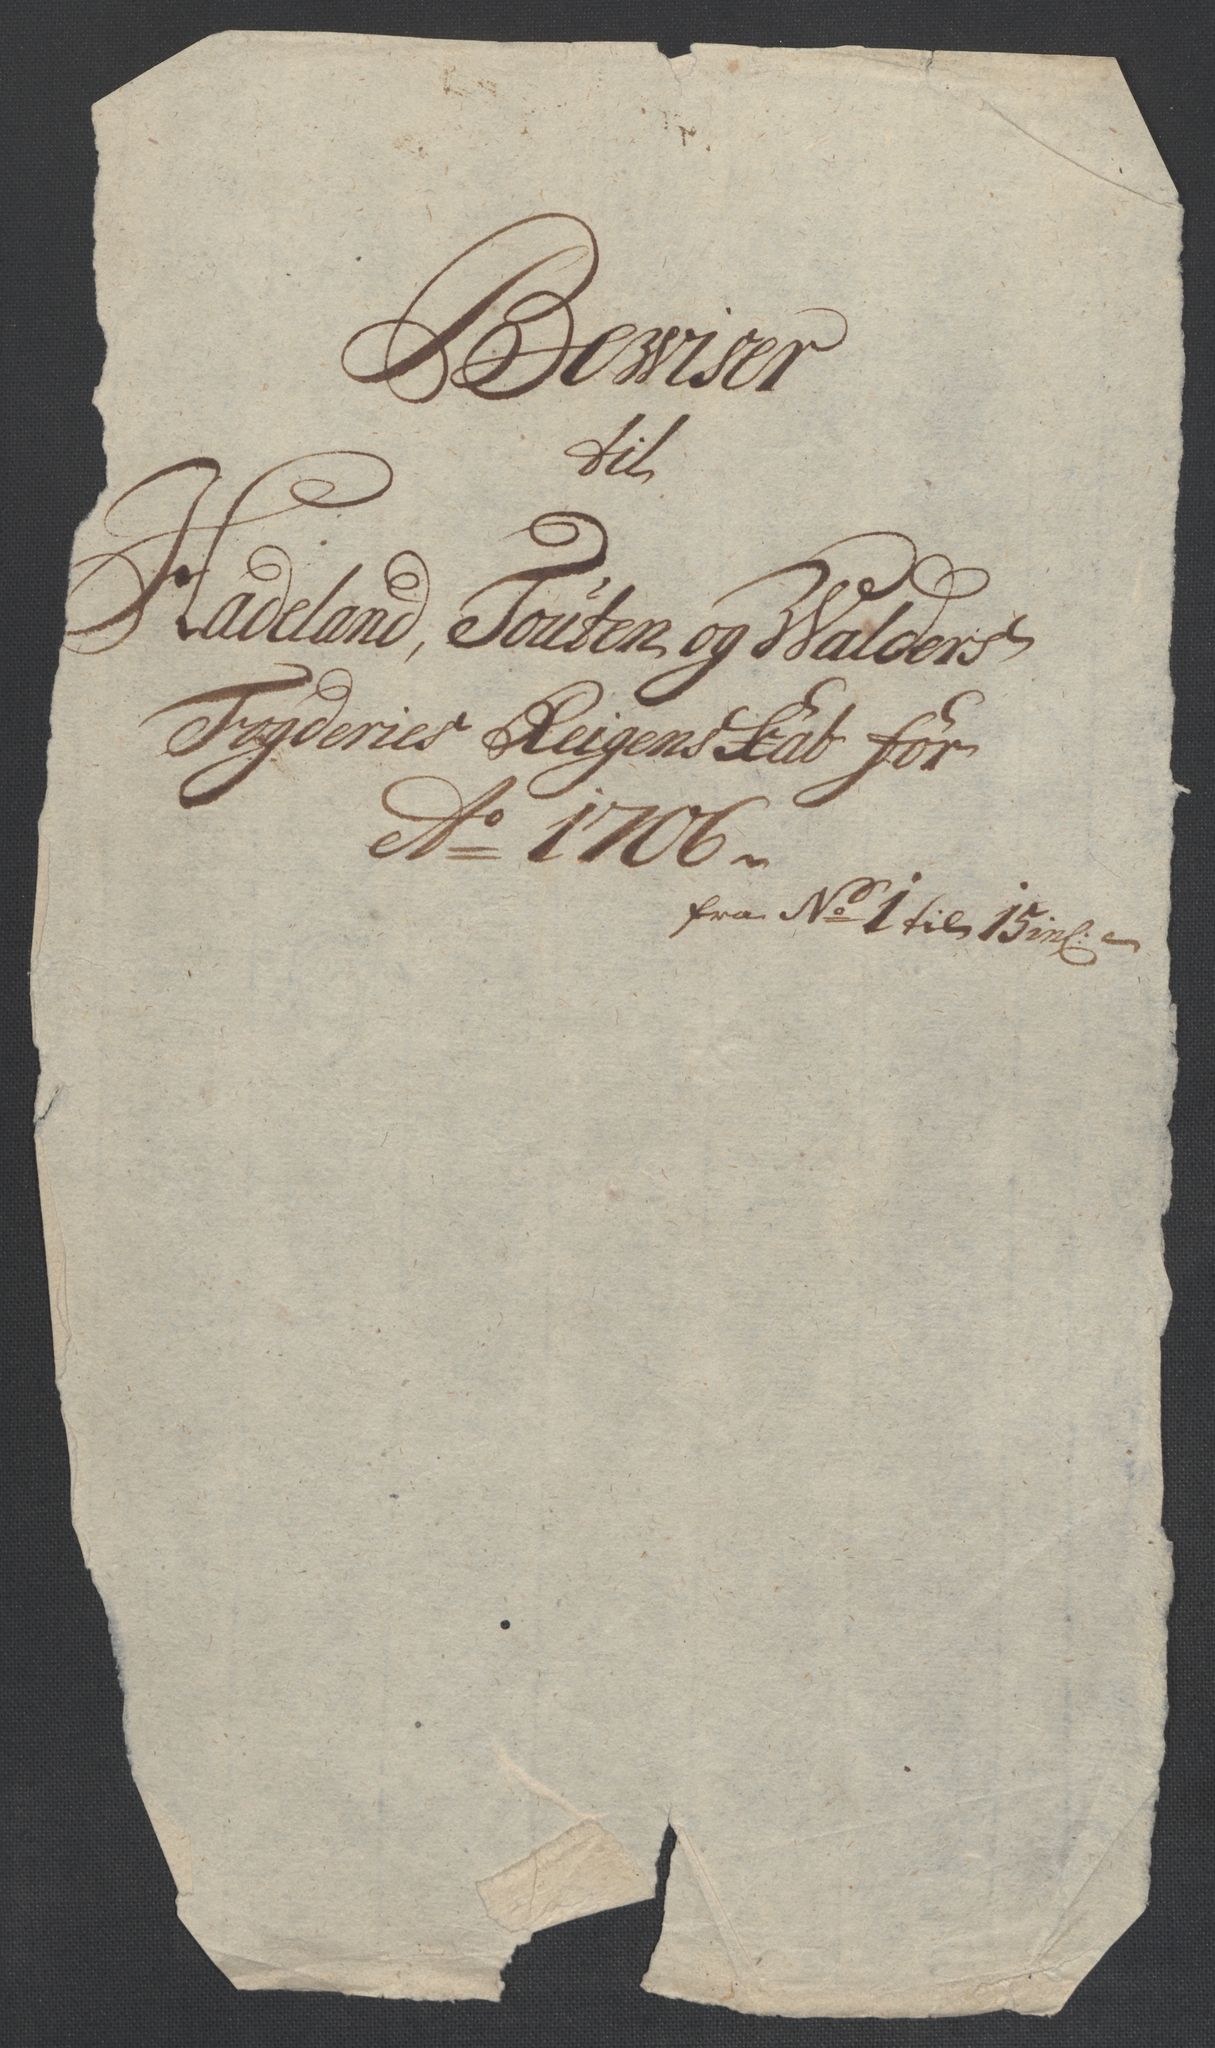 Bewiser
til
Hadeland, Touten og Walders
Fogderies Reigenskab for
Ao 1706
fra No 1 til 15 incl: